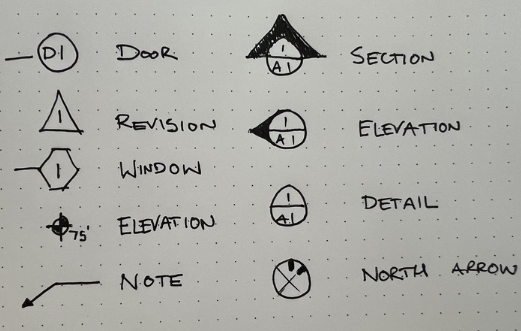 D1 DOOR
1 REVISION
1 WINDOW
75' ELEVATION
NOTE
1
A1 SECTION
1
A1 ELEVATION
1
A1 DETAIL
NORTH ARROW